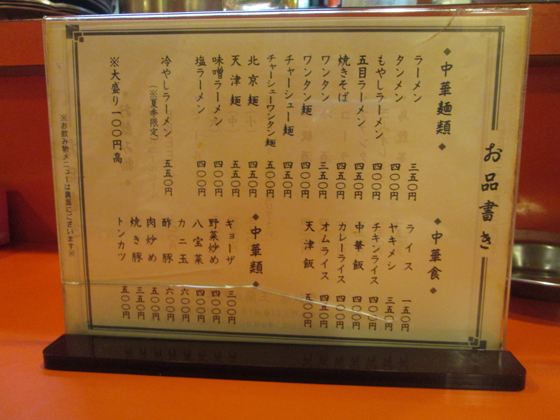 お品書き
◆中華麺類◆
ラーメン 三五〇円
タンメン 四〇〇円
もやしラーメン 四〇〇円
五目ラーメン 四五〇円
焼きそば 四五〇円
ワンタン 三五〇円
ワンタン麺 四〇〇円
チャーシュー麺 四五〇円
チャーシューワンタン麺 五〇〇円
北京麺 四五〇円
天津麺 五五〇円
味噌ラーメン 四〇〇円
塩ラーメン 四〇〇円
冷やしラーメン 五五〇円
(※夏季限定)
※大盛り一〇〇円高
◆中華食◆
ライス 一五〇円
ヤキメシ 三五〇円
チキンライス 四〇〇円
中華飯 四〇〇円
カレーライス 四〇〇円
オムライス 四五〇円
天津飯 五〇〇円
◆中華類◆
ギョーザ 三〇〇円
野菜炒め 四〇〇円
八宝菜 四〇〇円
カニ玉 六〇〇円
酢豚 六〇〇円
肉炒め 五〇〇円
焼き豚 三五〇円
トンカツ 五〇〇円
※お飲み物メニューは裏面にございます※